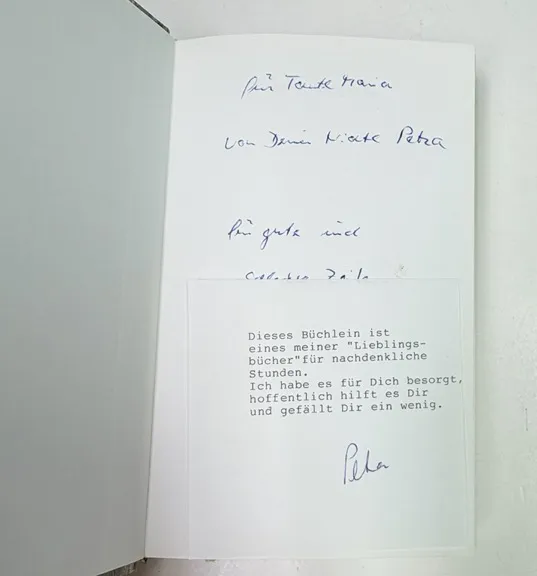 für Tante Maria
von Deiner Nichte Petra
für gute und
Dieses Büchlein ist
eines meiner "Lieblings-
bücher"für nachdenkliche
Stunden.
Ich habe es für Dich besorgt,
hoffentlich hilft es Dir
und gefällt Dir ein wenig.
Petra